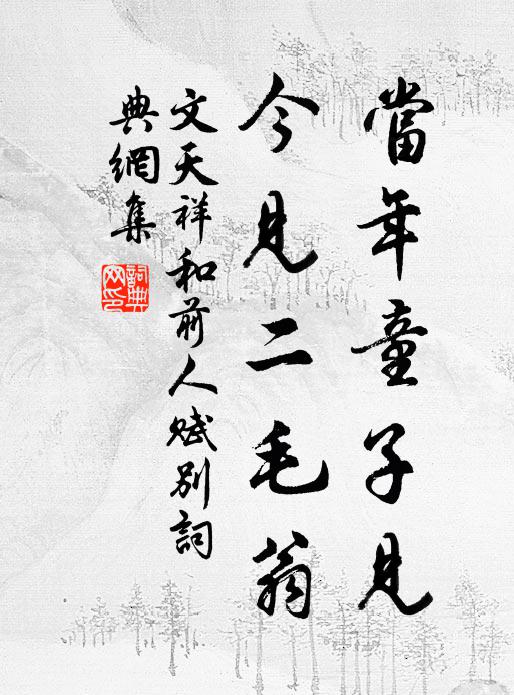 當年童子見
今見二毛翁
文天祥和前人賦別詞
典網集
詞典
网印